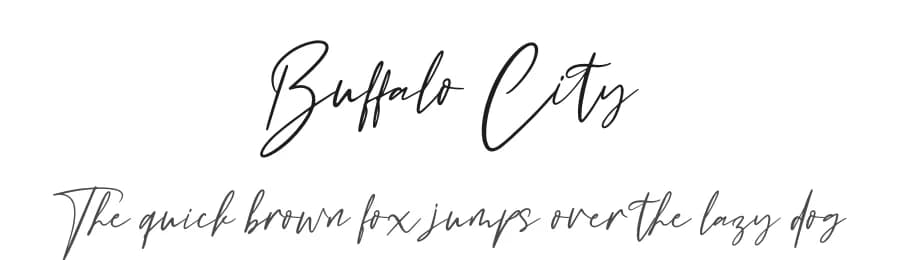 Buffalo City
The quick brown fox jumps over the lazy dog